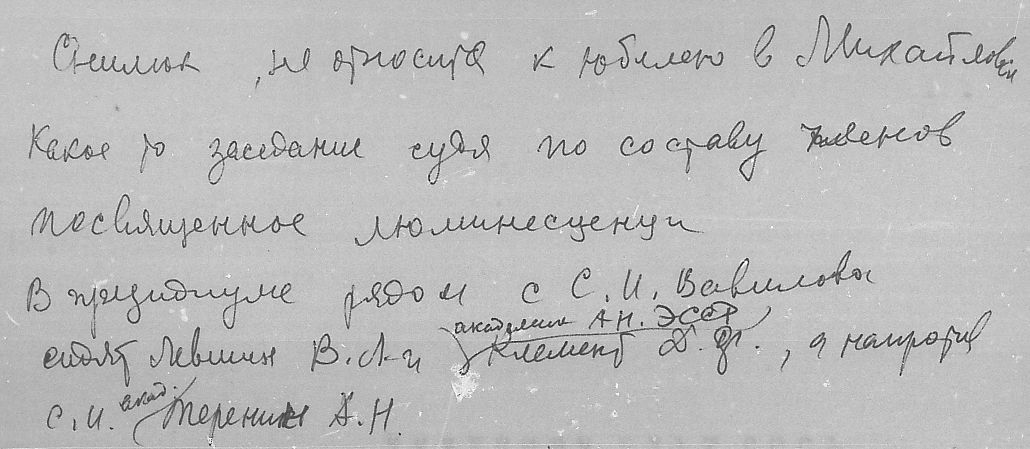 Снимок, не относится к юбилею в Михайлов
Какое то заседание судя по составу членов
посвященное люминесценции
В президиуме рядом с С.И. Вавиловым
академик АН. ЭССР
сидят Левшин В.Л. и Клемент Ф.Д., а напротив
С.И. акад. Теренин А.Н.